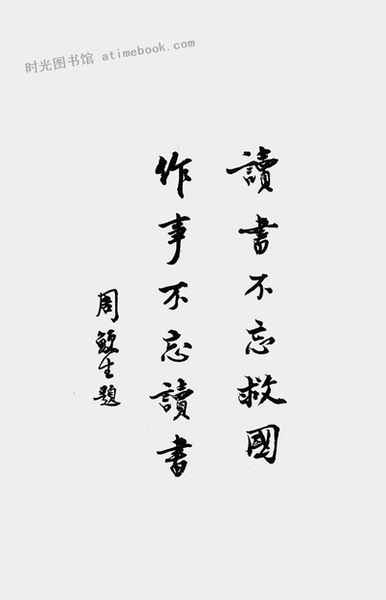 时光图书馆 atimebook.com
讀書不忘救國
作事不忘讀書
周鯁生題